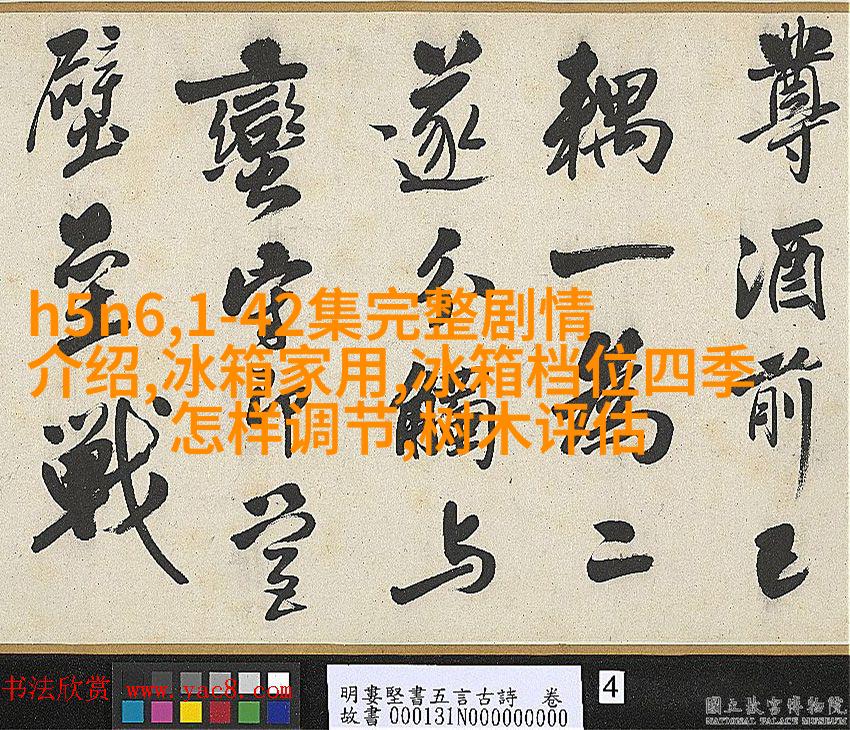 尊酒前已
耦一為二
遂分觸与
蠻
壁壘戰
h5n6,1-42集完整剧情
介绍,冰箱家用,冰箱档位四季
怎样调节,树木评估
书法欣赏 www.yac8.com
明婁堅書五言古詩 卷
故書000131N000000000
4
國立故宮博物院
NATIONAL PALACE MUSEUM